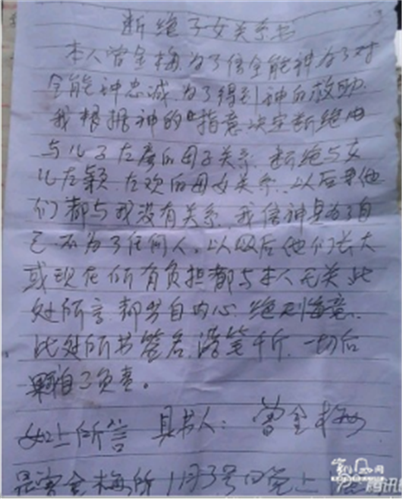 断绝子女关系书
本人曾金梅为了信全能神为了对
全能神忠诚，为了得到神的救助，
我根据神的"指意决定断绝由
与儿子左康的母子关系，断绝与女
儿左颖，左欢的母女关系，以后我他
们都与我没有关系，我信神是为了自
己不为了任何人。以以后他们长大
或现在所有负担都与本人无关，此
处所言都出自内心，绝不悔意，
此处所书签名，落笔千斤，一切后
果自己负责。
如上所言 具书人：曾金梅
是曾金梅所 11月3号的晚上
腾讯